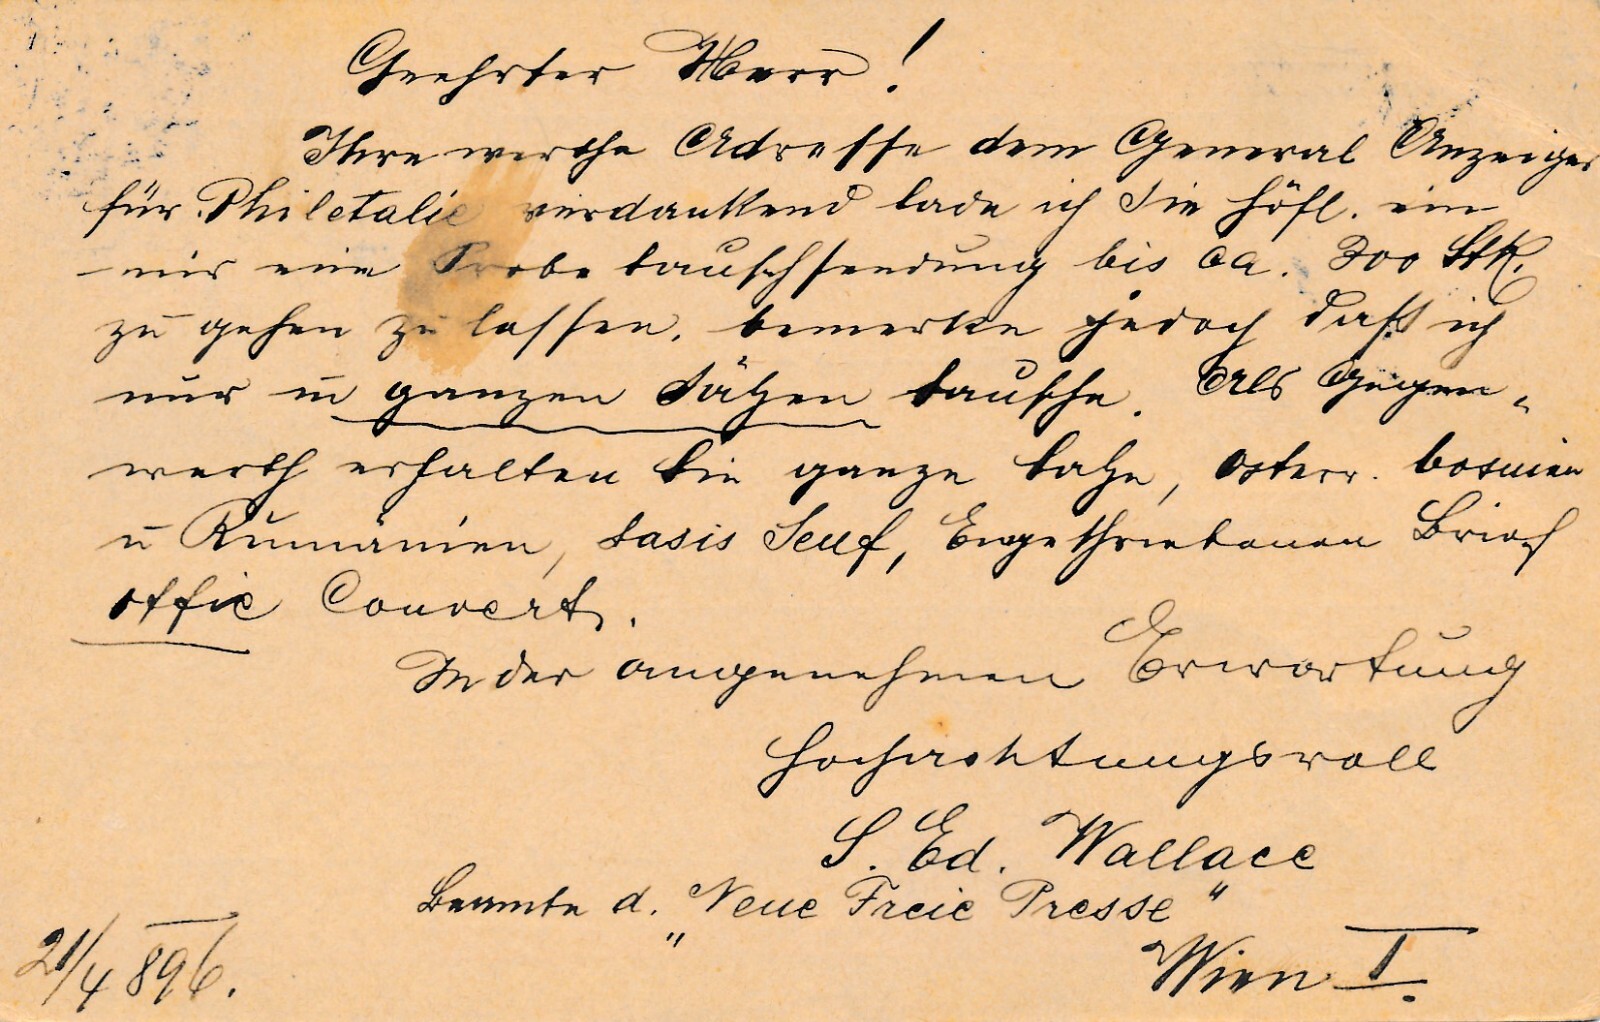 Geehrter Herr!
Ihre werthe Adresse dem General Anzeiger
für Philatelie verdankend lade ich Sie höfl. ein
mir eine Probetauschsendung bis ca. 300 Stk.
zu gehen zu lassen, bemerke jedoch daß ich
nur in ganzen Sätzen tausche. Als Gegen„
werth erhalten Sie ganze Sätze, österr. bosnien
u Rumänien, Brief
Couvert.
In der angenehmen Erwartung
Hochachtungsvoll
S. Ed. Wallace
Beamte d. „Neue Freie Presse“
Wien I.
21/4 896.